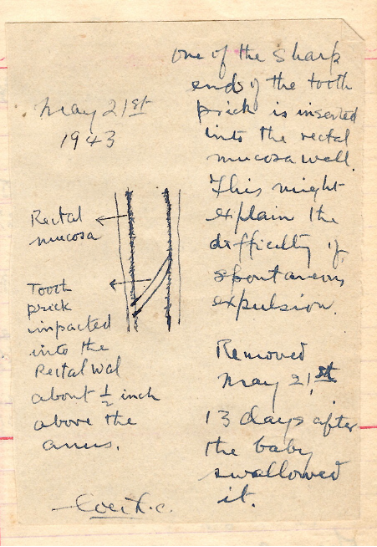 May 21st
1943
Rectal
mucosa
Tooth
prick
impacted
into the
Rectal Wal
about ½ inch
above the
anus.
one of the sharp
ends of the tooth
prick is inserted
into the rectal
mucosa wall.
This might
explain the
difficulty of
spontaneous
expulsion.
Removed
May 21st.
13 days after
the baby
swallowed
it.